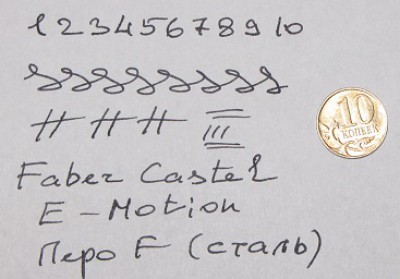 1 2 3 4 5 6 7 8 9 10
10 КОПЕЕК
Faber Castel
E - Motion
Перо F (сталь)